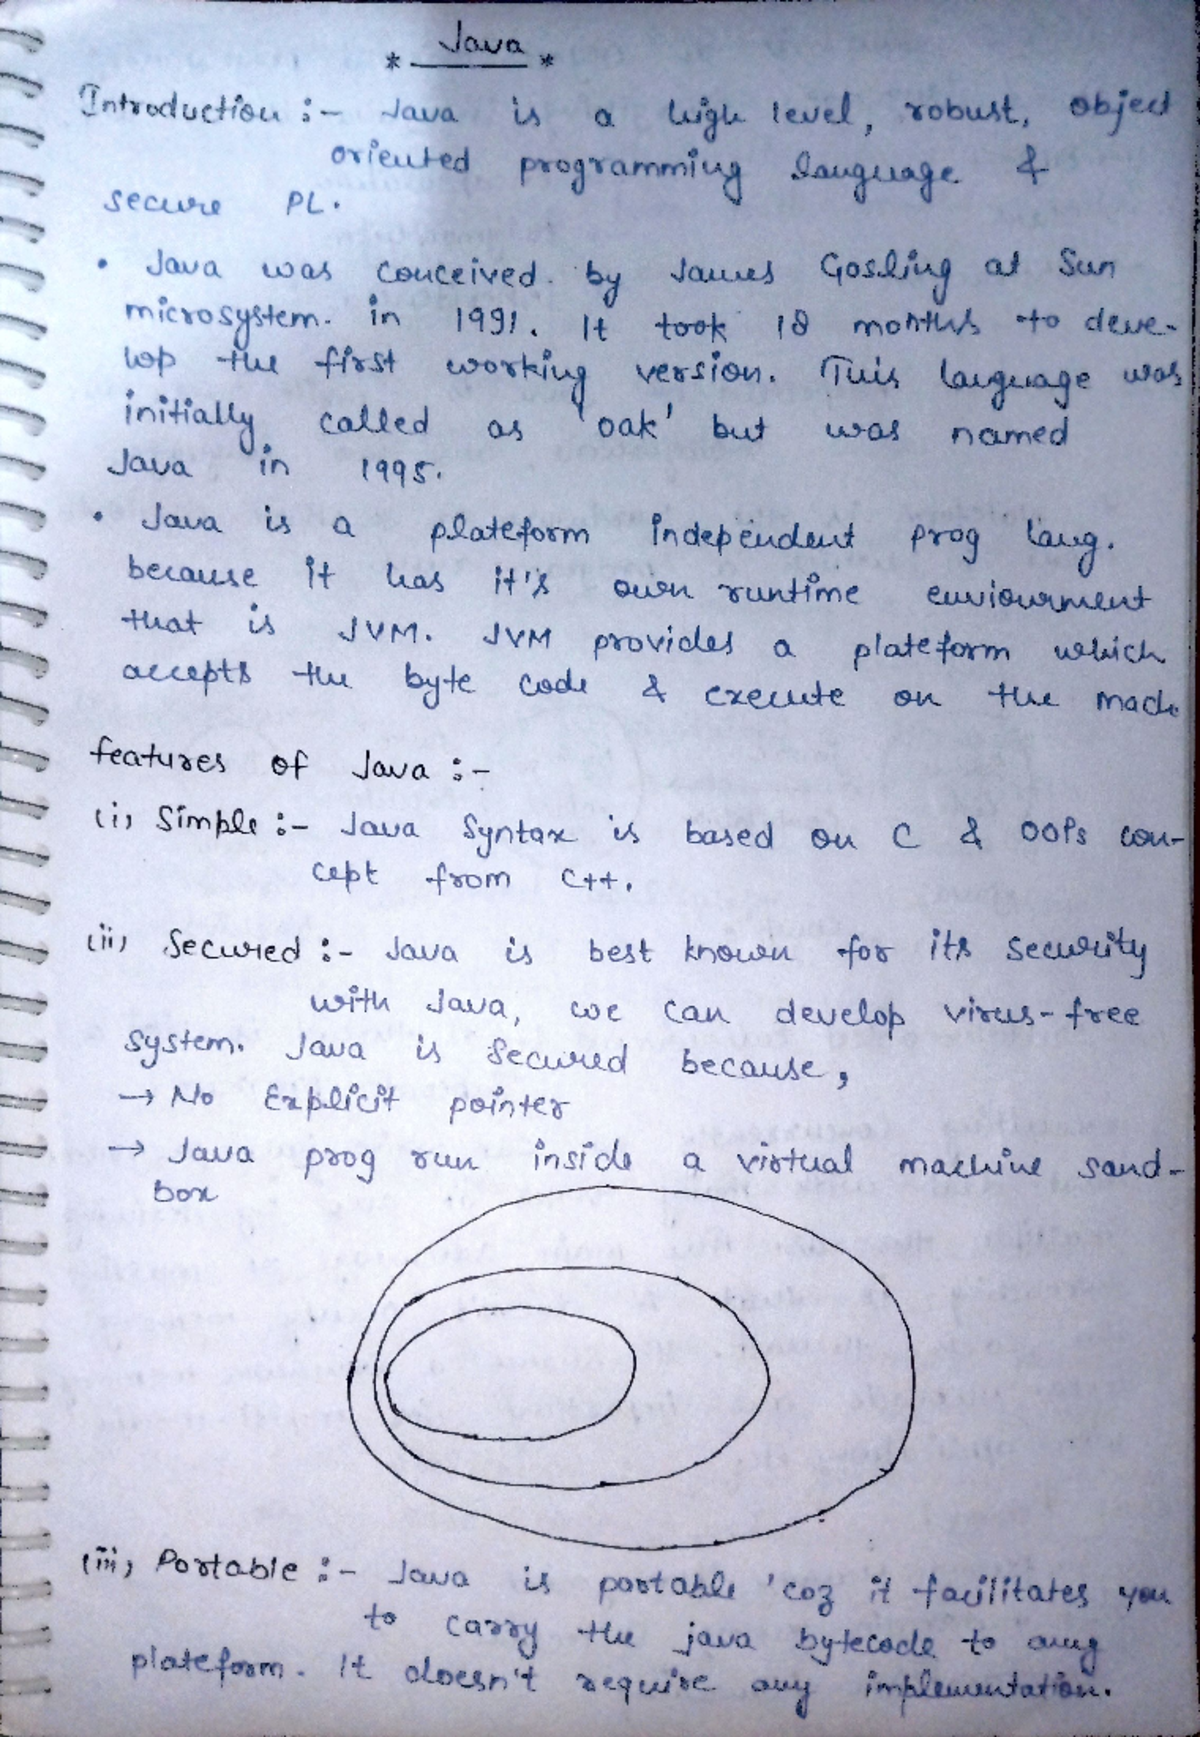 * Java *
Introduction :- Java is a high level, robust, object
oriented programming language &
secure PL.
• Java was conceived by James Gosling at Sun
microsystem. in 1991. It took 18 months to deve-
lop the first working version. This language was
initially called as 'oak' but was named
Java in 1995.
• Java is a plateform independent prog lang.
because it has it's own runtime enviourment
that is JVM. JVM provides a plateform which
accepts the byte code & execute on the mach
features of Java :-
(i) Simple :- Java Syntax is based on C & OOPs con-
cept from C++.
(ii) Secured :- Java is best known for its security
with Java, we can develop virus-free
system. Java is Secured because,
→ No Explicit pointer
→ Java prog run inside a virtual machine sand-
box
(iii) Portable :- Java is portable 'coz it facilitates you
to carry the java bytecode to any
plateform. It doesn't require any implementation.